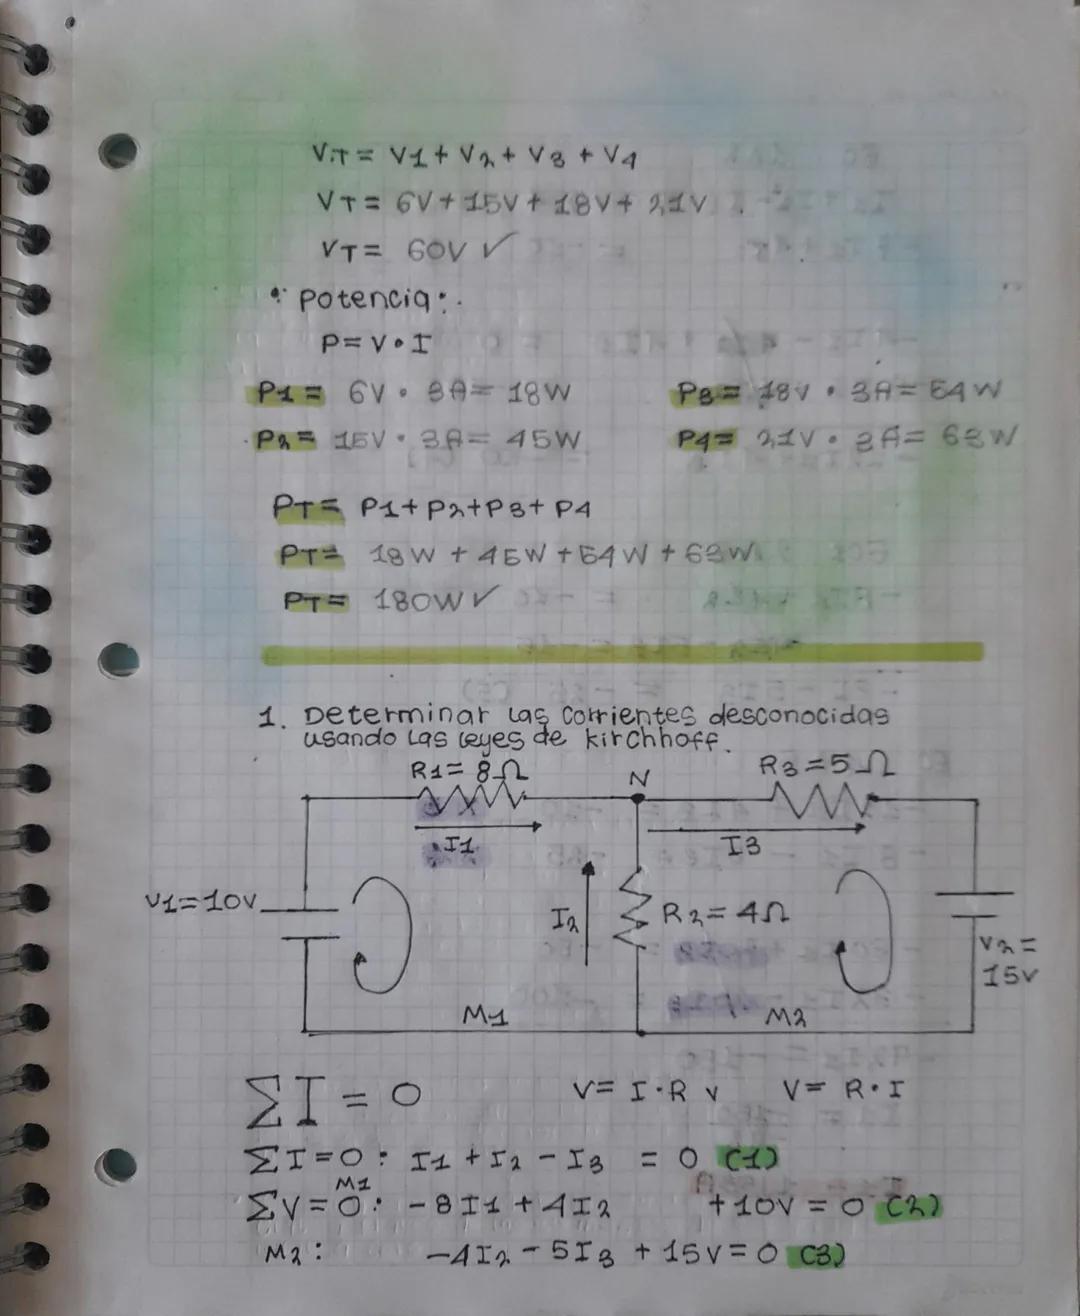 V.T = V1 + V2 + V3 + V4
VT = 6V + 15V + 18V + 21V
VT = 60V ✓
Potencia:.
P = V • I
P1 = 6V • 3A = 18W
P3 = 18V • 3A = 54W
P2 = 15V • 3A = 45W
P4 = 21V • 3A = 63W
PT = P1 + P2 + P3 + P4
PT = 18W + 45W + 54W + 63W
PT = 180W ✓
1. Determinar las corrientes desconocidas
usando las leyes de kirchhoff.
R1 = 8Ω
N
R3 = 5Ω
I1
I3
V1 = 10V
I2
R2 = 4Ω
V2 =
15V
M1
M2
ΣI = 0
V = I • R v
V = R • I
ΣI = 0: I1 + I2 - I3 = 0 (1)
M1
ΣV = 0: -8I1 + 4I2 + 10V = 0 (2)
M2: -4I2 - 5I3 + 15V = 0 (3)